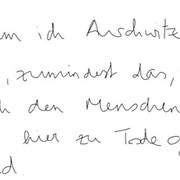 um ich Auschwitz
, zumindest das,
ch den Menschen
hier zu Tode g
d.